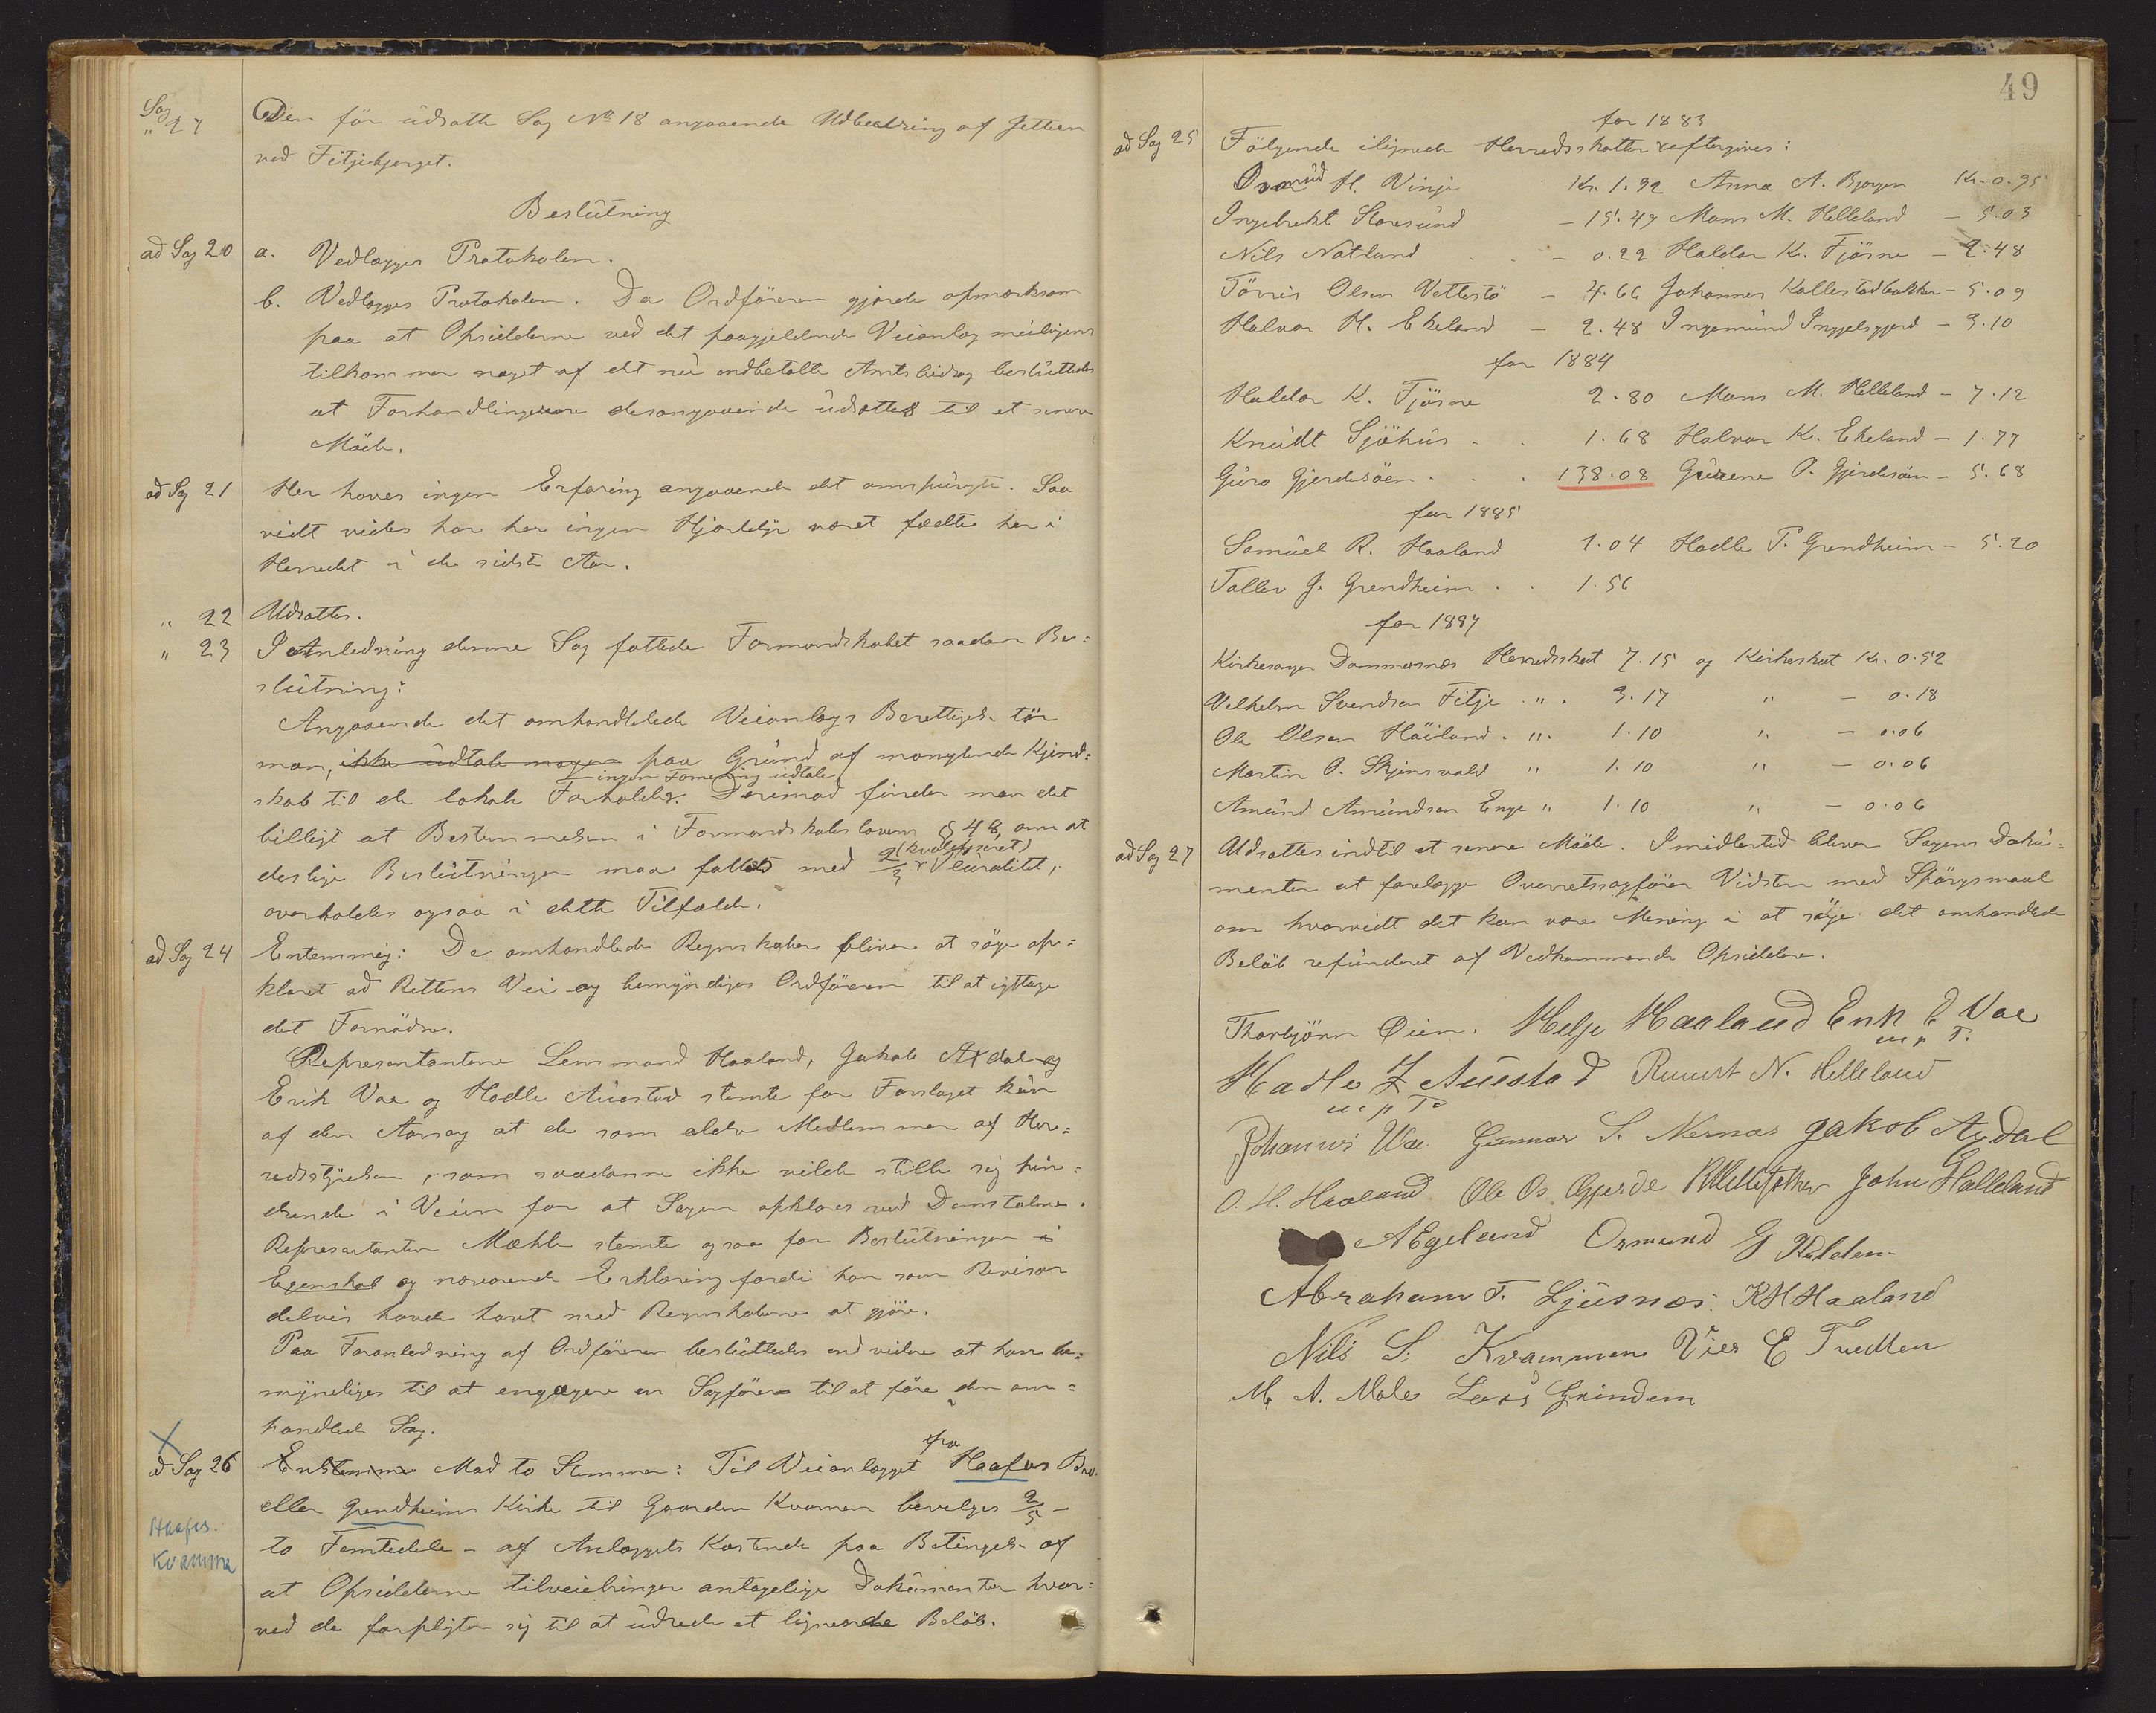 Sag
" 27
Den för udsatte Sag No 18 angaaende Udbedring af Jetteen
ved Fitjebjerget.
Beslutning
ad Sag 20
a. Vedlægges Protokolen.
b. Vedlægges Protokolen. Da Ordföreren gjorde opmærksom
paa at Opsidderne ved det paagjeldende Veianlæg muligens
tilkommer noget af det nu indbetalte Amtsbidrag besluttedes
at Forhandlingerne desangaaende udsættes til et senere
Möde.
ad Sag 21
Her haves ingen Erfaring angaaende det omspurgte. Saa
vidt vides har her ingen Hjortedyr været fældte her i
Herredet i de sidste Aar.
" 22
Udsættes.
" 23
I Anledning denne Sag fattede Formandskabet saadan Be=
slutning:
Angaaende det omhandlede Veianlægs Berettigels. tör
man, ikke udtale nogen paa Grund af manglende Kjend=
ingen Formening udtale
skab til de lokale Forholde. Derimod finder man det
billigt at Bestemmelsen i Formandskabsloven § 48, om at
(kvalificeret)
deslige Beslutninger maa fattes med 2/3 Pluralitet,
overholdes ogsaa i dette Tilfælde.
ad Sag 24
Enstemmig: De omhandlede Regnskaber bliver at söge op=
klaret ad Rettens Vei og bemyndiges Ordföreren til at iagttage
det Fornödne.
Repræsentantene Lensmand Haaland, Jakob Axdal og
Erik Vae og Hadle Austad stemte for Forslaget kun
af den Aarsag at de som ældre Medlemmer af Her=
redsstyrelsen, som saadanne ikke vilde stille sig hin=
drende i Veien for at Sagen opklares ved Domstolene.
Repræsentanten Mæhle stemte ogsaa for Beslutningen i
Egenskab og nærværende Erklæring fordi han som Revisor
delvis havde havt med Regnskaberne at gjöre.
Paa Foranledning af Ordföreren besluttedes endvidere at han be=
myndiges til at engagere en Sagförer til at före den om=
handlede Sag.
ad Sag 26
Enstemmig Mod to Stemmer: Til Veianlægget fra Haafos Bro
eller Grendheim Kirke til Gaarden Kvamen bevilges 2/5 -
Haafos.
Kvamme
to Femtedele - af Anlæggets Kostende paa Betingels. af
at Opsidderne tilveiebringer antagelige Dokumenter hvor=
ved de forpligter sig til at udrede et lignende Beløb.
49
ad Sag 25
for 1883
Fölgende ilignede Herredsskatter eftergives:
Osmund H. Vinje Kr. 1.92 Anna A. Bjorgen Kr. 0.95
Ingebrekt Storesund - 15.47 Mons M. Helleland - 5.03
Nils Natland - 0.22 Haldor K. Fjösne - 2.48
Törris Olsen Vettestö - 4.66 Johannes Kallestadbakken - 5.09
Halvor H. Ekeland - 2.48 Ingemund Inggelsgjerd - 3.10
for 1884
Haldor K. Fjösne 2.80 Mons M. Helleland - 7.12
Knudt Sjöhus 1.68 Halvor K. Ekeland - 1.77
Guro Gjerdesöen 138.08 Gurene O. Gjerdesöen - 5.68
for 1885
Samuel R. Haaland 1.04 Hadle T. Grendheim - 5.20
Tallev J. Grendheim 1.56
for 1887
Kirkesanger Dommersnes Herredsskat 7.15 og Kirkeskat Kr. 0.52
Velhelm Svendsen Fitje " 3.17 " - 0.18
Ole Olsen Höiland " 1.10 " - 0.06
Martin O. Skjensvold " 1.10 " - 0.06
Amund Amundsen Enge " 1.10 " - 0.06
ad Sag 27
Udsættes indtil et senere Möde. Imidlertid bliver Sagens Doku=
menter at forelægge Overretssagförer Vidsten med Spörgsmaal
om hvorvidt det kan være Mening i at söge det omhandlede
Belöb refunderet af Vedkommende Opsiddere.
Thorbjörn Øien. Helje Haaland Erik E Vae
m p P.
Hadle Z Austad Knut N. Helleland
m p P
Johannes Vae. Gunnar S. Nernæs Jakob Axdal
O. H. Haaland Ole Os. Gjerde John Halleland
A Egeland Osmund G Kalden
Abraham T. Ljusnæs. KHHaaland
Nils S. Kvammen Vier E Tvedten
M A. Mæle Lars Grindem